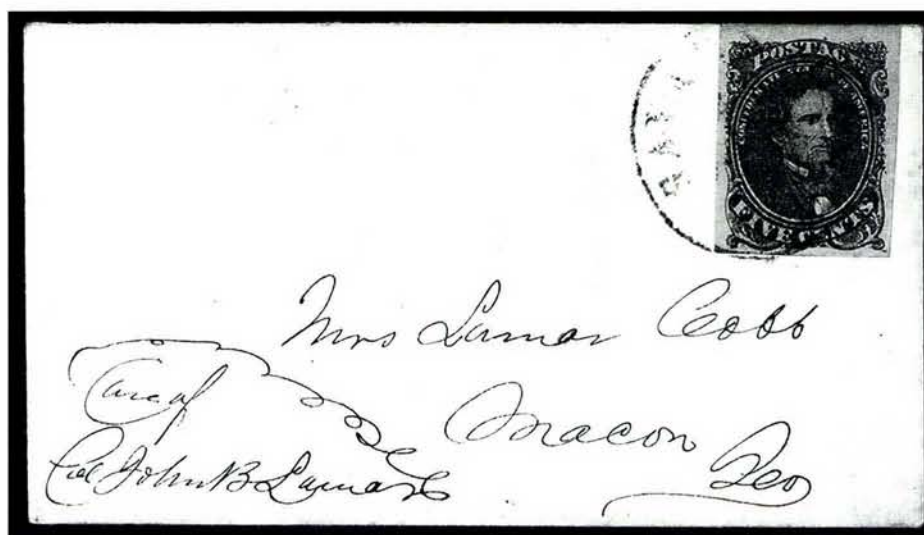 POSTAGE
CONFEDERATE STATES OF AMERICA
FIVE CENTS
Mrs Lamar Cobb
Macon
Geo
Care of
Col John B Lamar